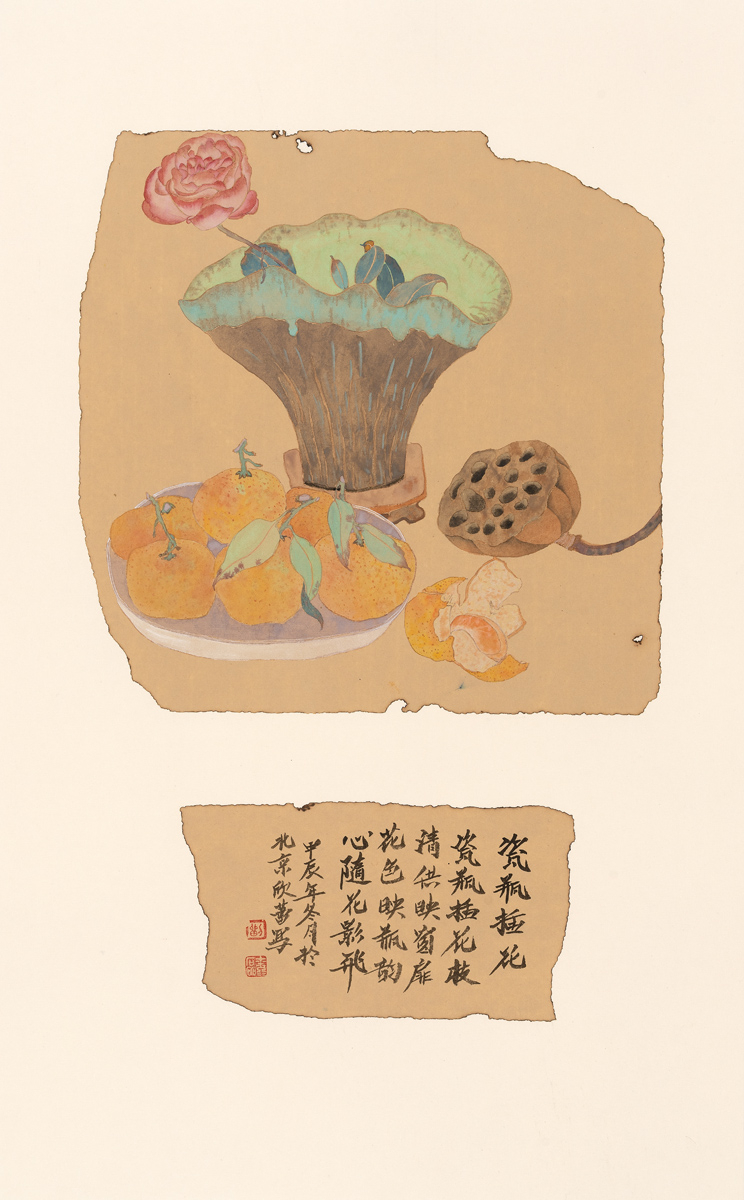 瓷瓶插花
瓷瓶插花枝
清供映窗扉
花色映瓶韵
心随花影飛
甲辰年冬月於
北京欣